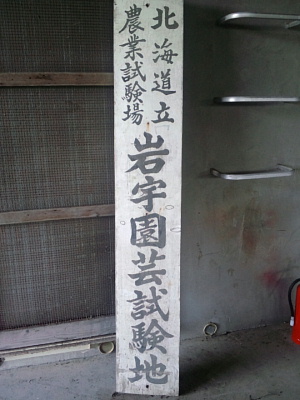 北海道立
農業試験場
岩宇園芸試験地